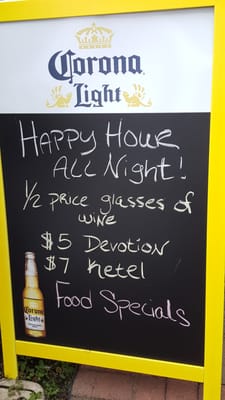 Corona
Light
HAPPY HOUR
ALL NIGHT!
1/2 PRICE GLASSES OF
WINE
$5 Devotion
$7 Ketel
Food Specials
Corona
Light